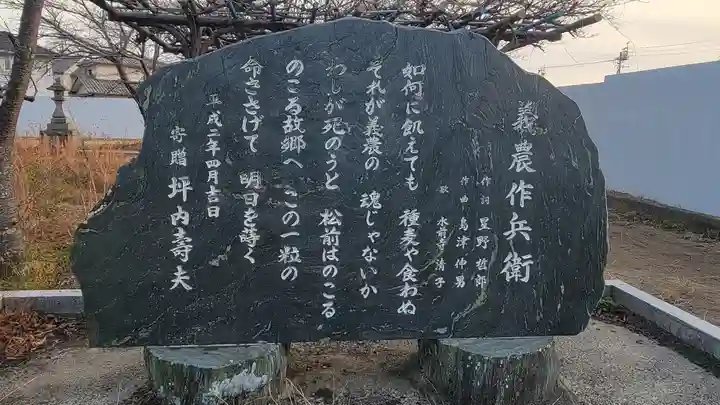 義農作兵衛
作詞 星野哲郎
作曲 島津伸男
歌 水前寺清子
如何に飢えても 種麦や食わぬ
それが義農の 魂じゃないか
わしが死のうと 松前はのこる
のこる故郷へ この一粒の
命さゝげて 明日を蒔く
平成二年四月吉日
寄贈 坪内寿夫